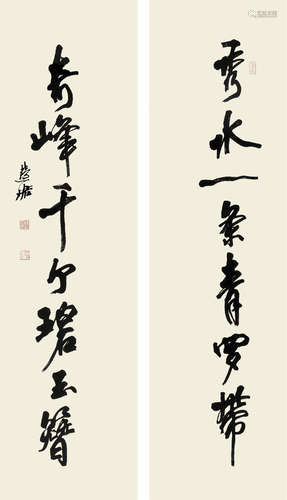 秀水一条青罗带
奇峰千个碧玉簪
楚珺